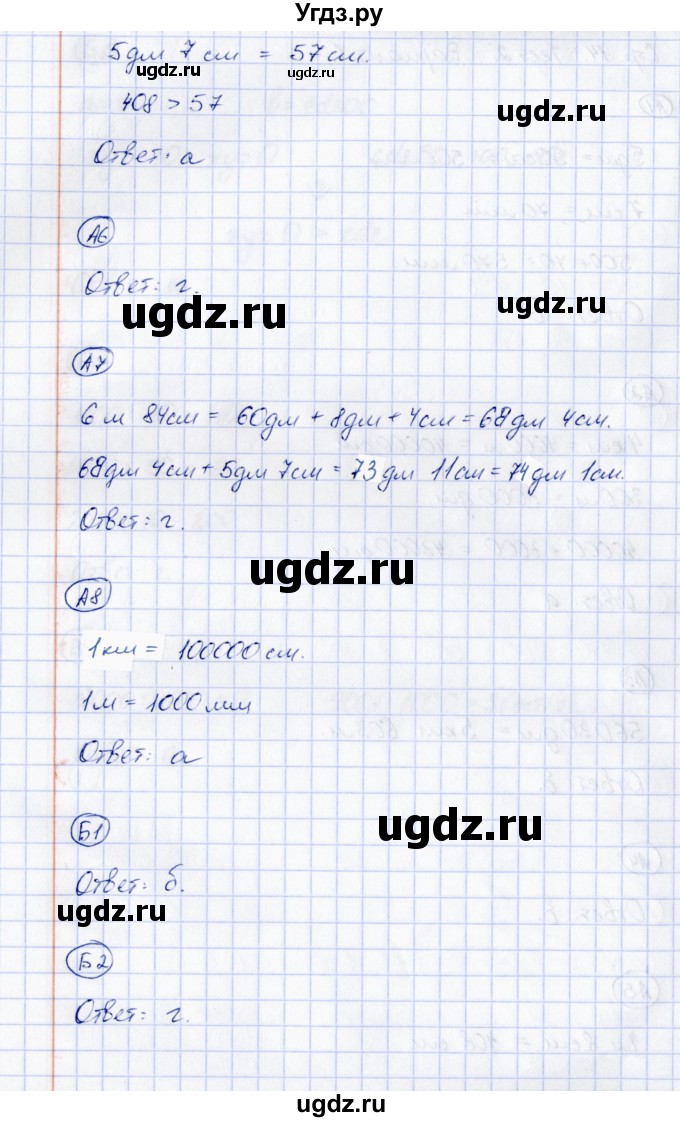 Угдз.ру
5дм 7см = 57см.
ugdz.ru
ugdz.ru
ugdz.ru
408 > 57
Ответ: а
А6
Ответ: г.
ugdz.ru
ugdz.ru
А7
6м 84см = 60дм + 8дм + 4см = 68дм 4см.
68дм 4см + 5дм 7см = 73дм 11см = 74дм 1см.
Ответ: г.
ugdz.ru
А8
1км = 100000см.
1м = 1000мм
Ответ: а
Б1
ugdz.ru
Ответ: б.
ugdz.ru
Б2
Ответ: г.
ugdz.ru